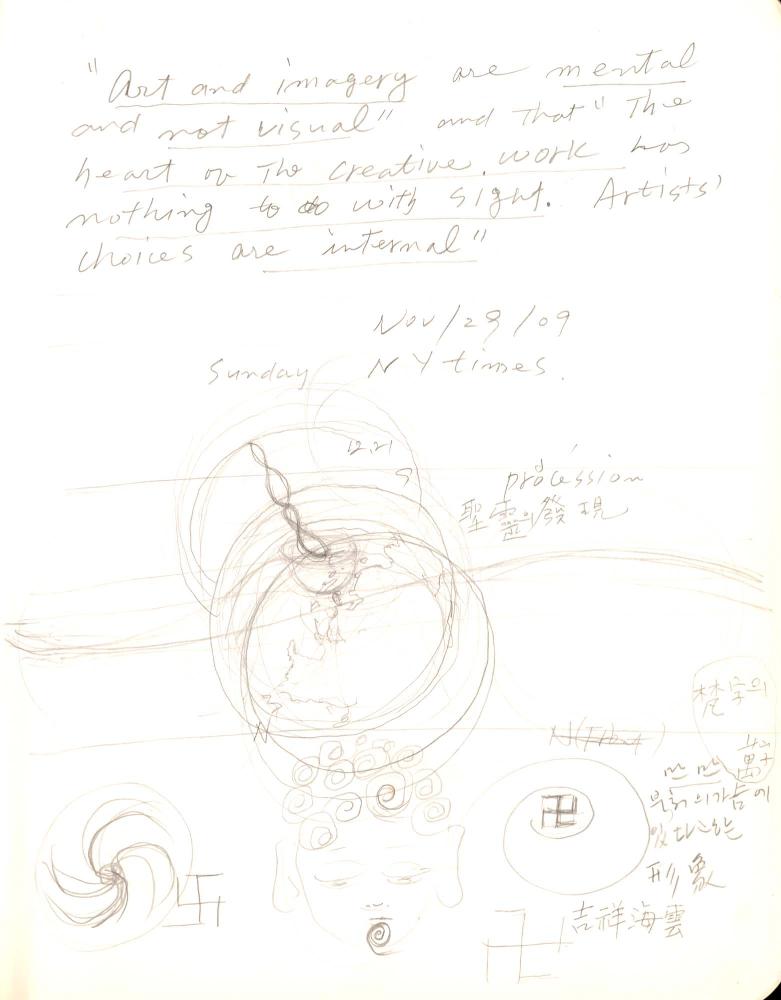 "Art and imagery are mental
and not visual" and that "The
heart of The creative work has
nothing to do with sight. Artists'
choices are internal"
Nov/29/09
Sunday NY times.
12.21
procession
聖靈의 發現
N
梵字의
萬
부처의 가슴에
있다는
形象
吉祥海雲
卍
卍
卍